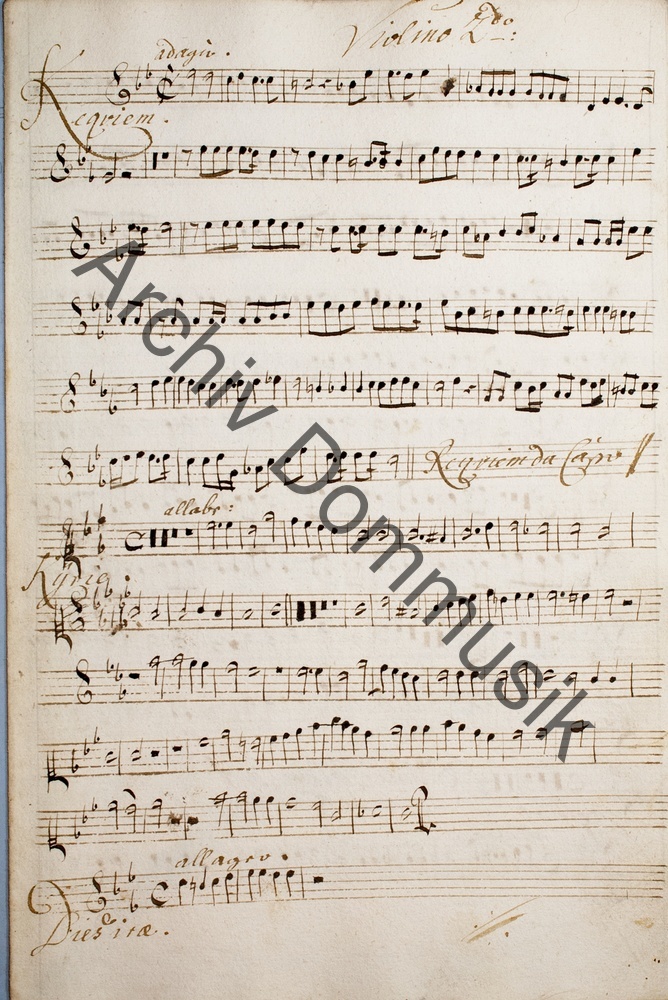 Violino 2do:
adagio.
Requiem.
Requiem da Capo
allabr:
Kyrie.
allagro.
Dies irae.
Archiv Dommusik